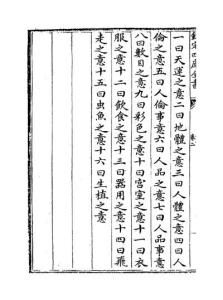 欽定四庫全書
一曰天運之意二曰地體之意三曰人體之意四曰人
倫之意五曰人倫事意六曰人品之意七曰人品事意
八曰數目之意九曰彩色之意十曰宮室之意十一曰衣
服之意十二曰飲食之意十三曰器用之意十四曰飛
走之意十五曰虫魚之意十六曰生植之意